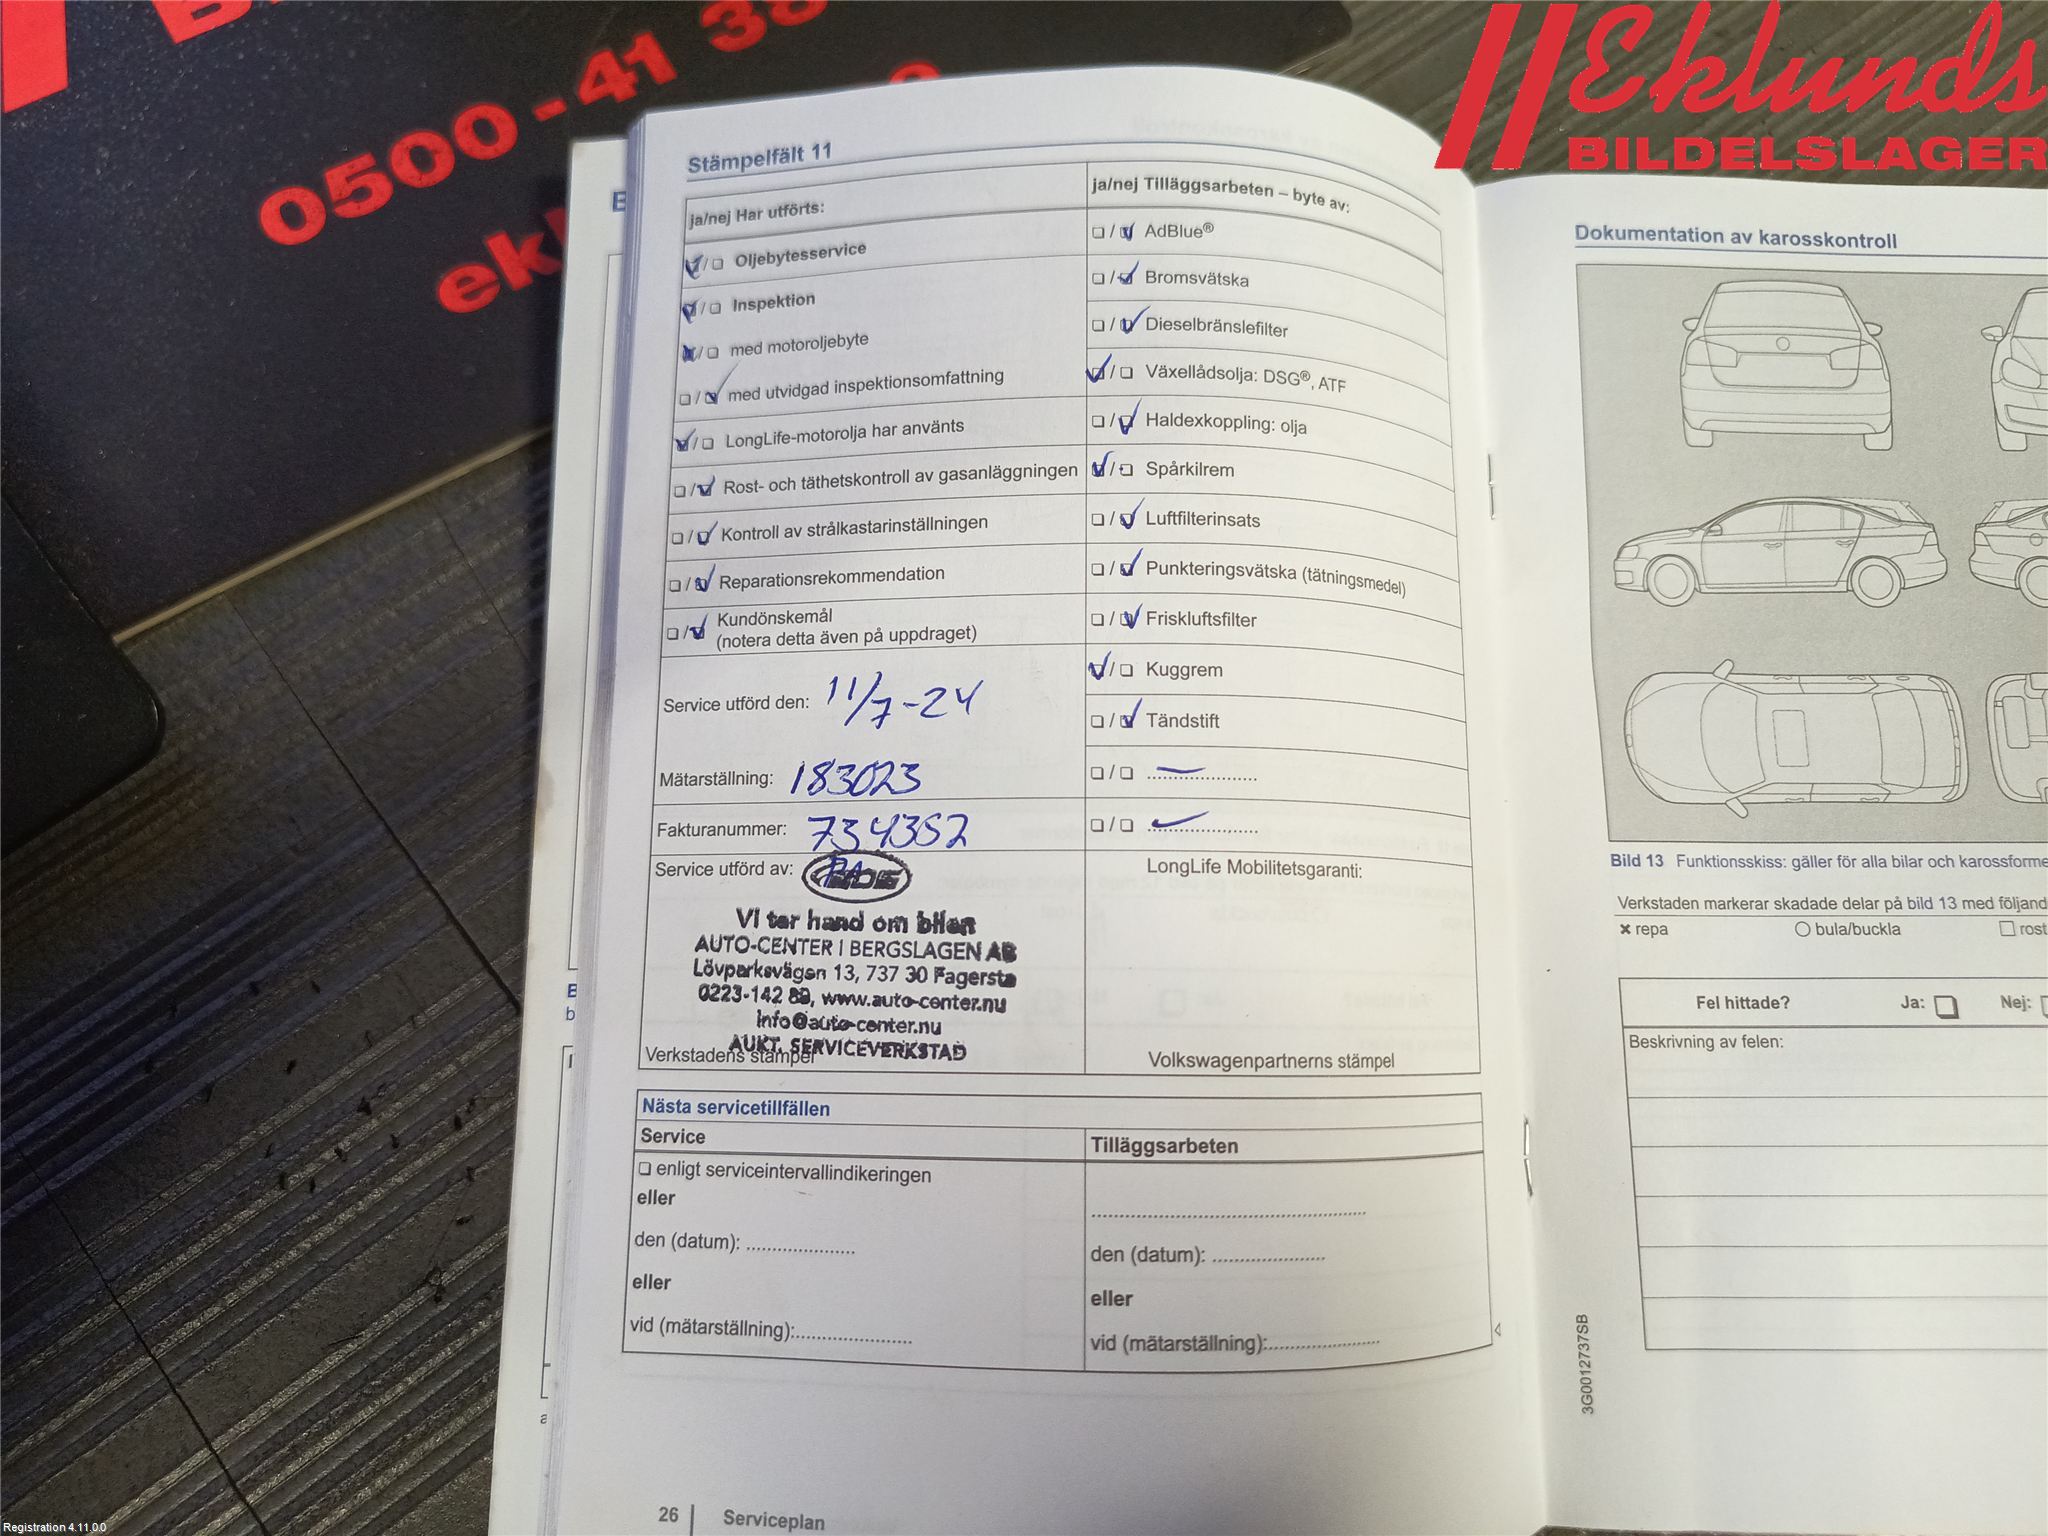 0500-41 38
Eklunds
BILDELSLAGER
Stämpelfält 11
ja/nej Har utförts:
Oljebytesservice
Inspektion
med motoroljebyte
med utvidgad inspektionsomfattning
LongLife-motorolja har använts
Rost- och täthetskontroll av gasanläggningen
Kontroll av strålkastarinställningen
Reparationsrekommendation
Kundönskemål
(notera detta även på uppdraget)
Service utförd den: 11/7-24
Mätarställning: 183023
Fakturanummer: 734352
Service utförd av:
Vi tar hand om bilen
AUTO-CENTER I BERGSLAGEN AB
Lövparksvägen 13, 737 30 Fagersta
0223-142 80, www.auto-center.nu
info@auto-center.nu
AUKT. SERVICEVERKSTAD
Verkstadens stämpel
ja/nej Tilläggsarbeten – byte av:
AdBlue®
Bromsvätska
Dieselbränslefilter
Växellådsolja: DSG®, ATF
Haldexkoppling: olja
Spårkilrem
Luftfilterinsats
Punkteringsvätska (tätningsmedel)
Friskluftsfilter
Kuggrem
Tändstift
LongLife Mobilitetsgaranti:
Volkswagenpartnerns stämpel
Nästa servicetillfällen
Service
enligt serviceintervallindikeringen
eller
den (datum): .....................
eller
vid (mätarställning):.......................
Tilläggsarbeten
den (datum): .....................
eller
vid (mätarställning):.......................
26 Serviceplan
Dokumentation av karosskontroll
Bild 13 Funktionsskiss: gäller för alla bilar och karossforme
Verkstaden markerar skadade delar på bild 13 med följand
× repa
bula/buckla
rost
Fel hittade? Ja: Nej:
Beskrivning av felen:
3G0012737SB
Registration 4.11.0.0